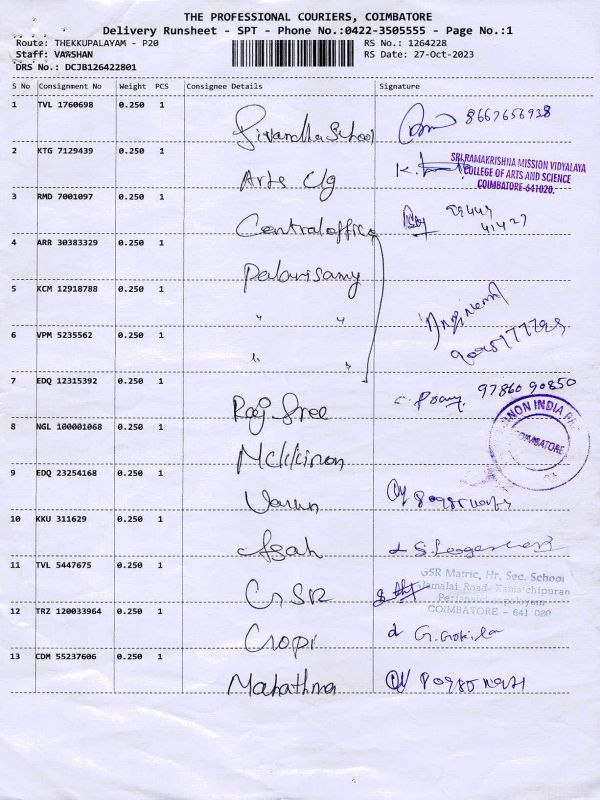 THE PROFESSIONAL COURIERS, COIMBATORE
Delivery Runsheet - SPT - Phone No.:0422-3505555 - Page No.:1
Route: THEKKUPALAYAM - P20
RS No.: 1264228
Staff: VARSHAN
RS Date: 27-Oct-2023
DRS No.: DCJB126422801
S No Consignment No Weight PCS Consignee Details Signature
1 TVL 1760698 0.250 1 School 8667656938
2 KTG 7129439 0.250 1 Arts Clg
SRI RAMAKRISHNA MISSION VIDYALAYA
COLLEGE OF ARTS AND SCIENCE
COIMBATORE-641020.
3 RMD 7001097 0.250 1 Central office
4 ARR 30383329 0.250 1 Palanisamy
5 KCM 12918788 0.250 1 " "
6 VPM 5235562 0.250 1 " "
7 EDQ 12315392 0.250 1 Raj Sree 97860 90850
8 NGL 100001068 0.250 1 Mckkinon
COIMBATORE
9 EDQ 23254168 0.250 1 Varun
10 KKU 311629 0.250 1
11 TVL 5447675 0.250 1 GSR
GSR Matric, Hr. Sec. School
COIMBATORE - 641 020
12 TRZ 120033964 0.250 1 Gopi G. Gokila
13 CDM 55237606 0.250 1 Mahathma